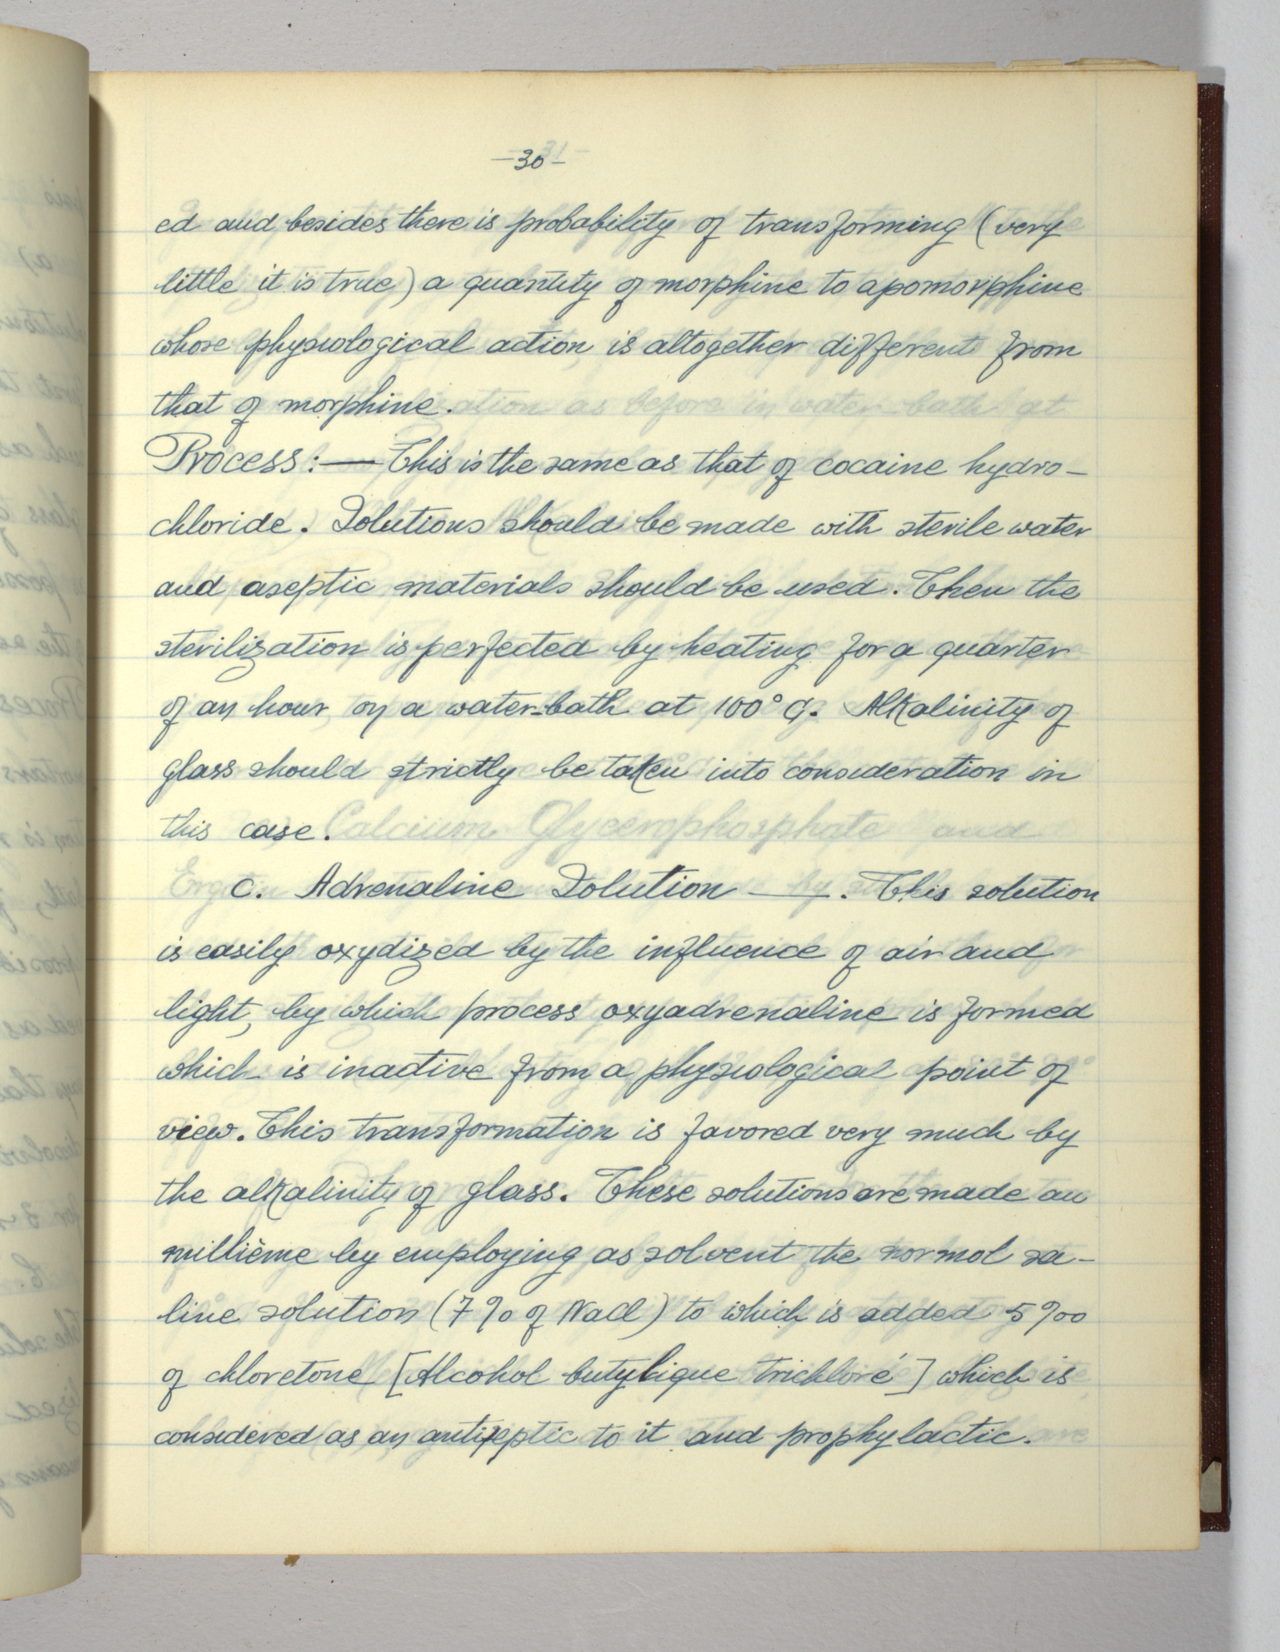 -30-
ed and besides there is probability of transforming (very
little it is true) a quantity of morphine to apomorphine
whose physiological action, is altogether different from
that of morphine.
Process:— This is the same as that of cocaine hydro-
chloride. Solutions should be made with sterile water
and aseptic materials should be used. Then the
sterilization is perfected by heating for a quarter
of an hour on a water-bath at 100° C. Alkalinity of
glass should strictly be taken into consideration in
this case.
C. Adrenaline Solution —. This solution
is easily oxydized by the influence of air and
light, by which process oxyadrenaline is formed
which is inactive from a physiological point of
view. This transformation is favored very much by
the alkalinity of glass. These solutions are made au
millième by employing as solvent the normal sa-
line solution (7 % of NaCl) to which is added 5 ‰
of chloretone [Alcohol butylique trichloré] which is
considered as an antiseptic to it and prophylactic.